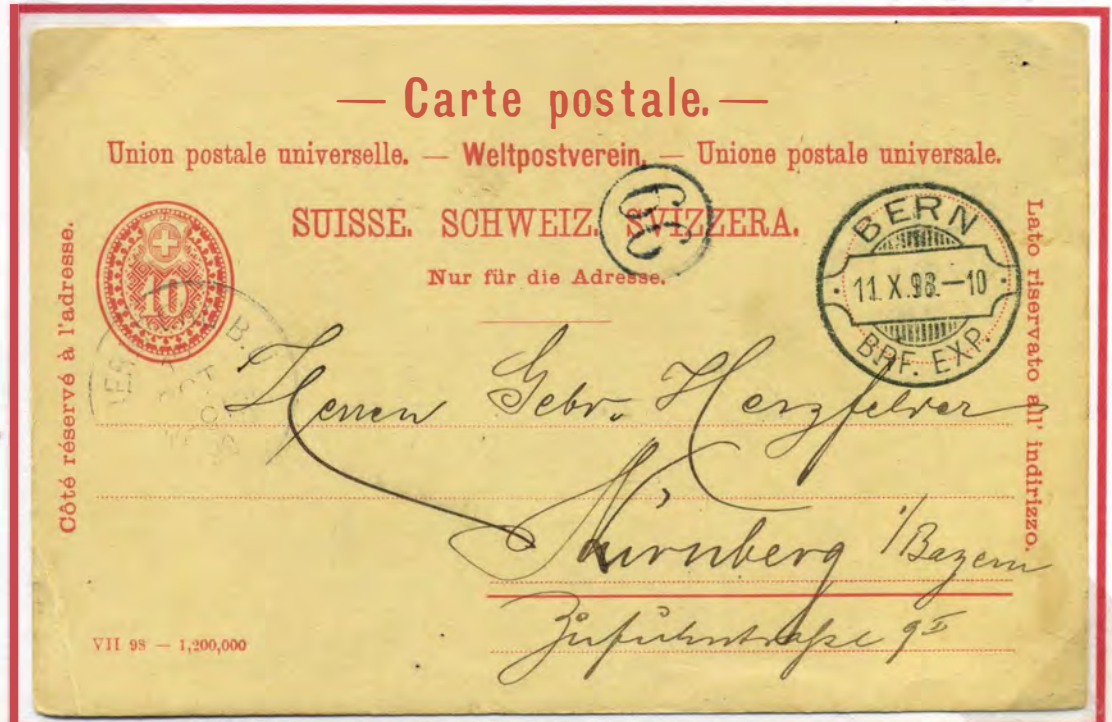 — Carte postale. —
Union postale universelle. — Weltpostverein. — Unione postale universale.
SUISSE. SCHWEIZ. SVIZZERA.
Nur für die Adresse.
Côté réservé à l'adresse.
Lato riservato all' indirizzo.
10
39
BERN
11. X. 98.—10
BRF. EXP.
Herren Gebr. Herzfelder
Nürnberg i/Bayern
9 II
VII 98 — 1,200,000